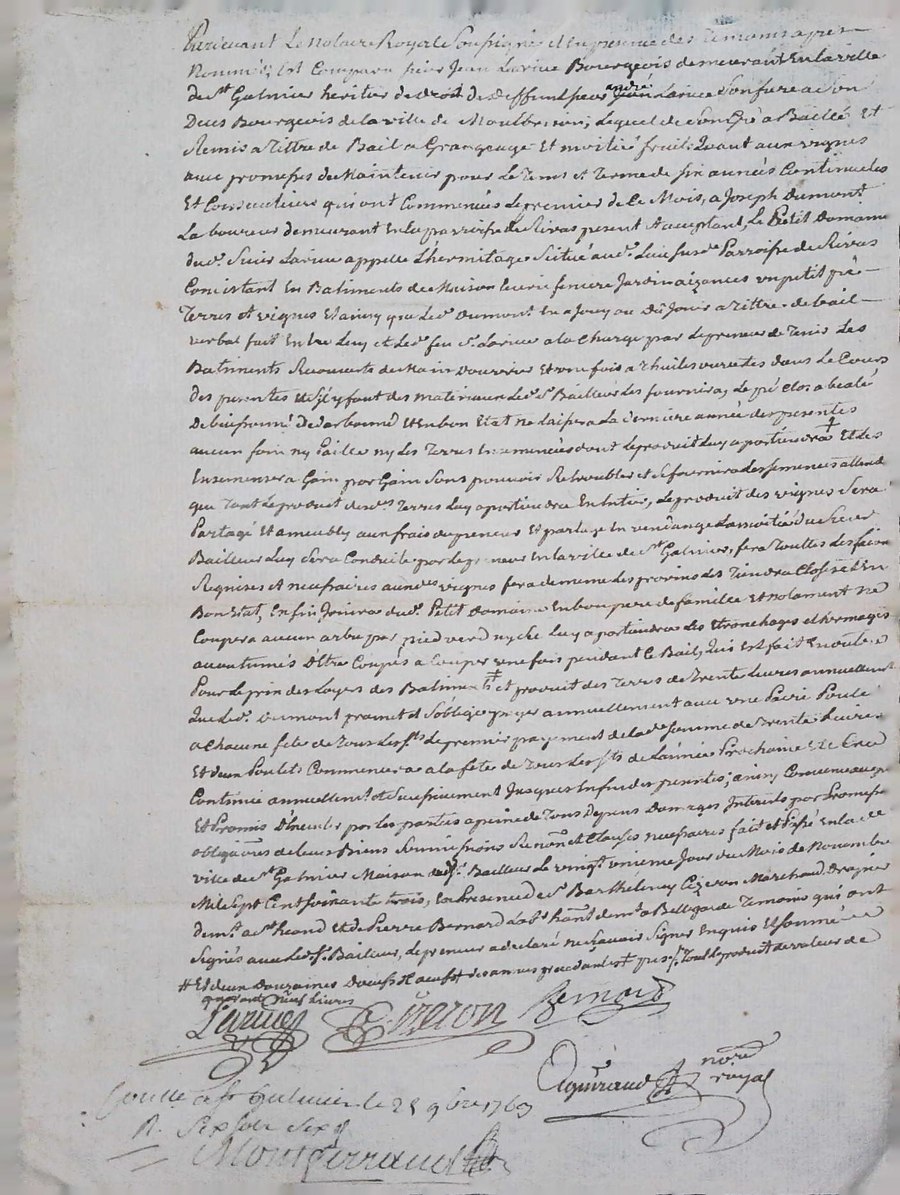 Pardevant Le Notaire Royal Soussigné et En presence des Temoins apres
Nommés Est Comparu sieur Jean Larue Bourgeois demeurant En la ville
de St Galmier heritier de droit de deffunt sieur andré Larue Son frere a Son
Deces Bourgeois de la ville de Montbrison, Lequel de Son Gré a Baillé Et
Remis a Tittre de Bail a Grangeage Et moitié fruit quant aux vignes
avec promesse de Maintenir pour Le Tems et Terme de six années Continuelles
Et Consecutives qui ont Commencés Le premier de Ce Mois, a Joseph Dumont
Laboureur demeurant En la parroisse de Rivas present et acceptant, Le Petit Domaine
dud. Sieur Larue appellé L'hermitage Scitué aud. Lieu susd. Parroisse de Rivas
Consistant En Batiments de Maison Ecurie feniere Jardin aizances un petit pré
Terres et vignes Et ainsy que Led. Dumont En a jouy ou dû Jouir a Tittre de bail
verbal fait Entre Luy et Led. feu Sr. Larue a la Charge par Le preneur de Tenir Les
Batiments Recouverts de Main d'ouvrier Et une fois a Thuiles versées dans Le Cours
des presentes Et S'il y faut des materiaux Led. Sr. Bailleur Les fournira, Le pré Clos
De buissonné Et En bon Etat ne Laissera La derniere année des presentes
aucun foin ny Paille ny Les Terres Ensemencés dont Le produit Luy apartiendra Et Les
Ensemencer a Gain par Gain Sans pouvoir Retroubler et Se fournira des Semences attendu
que Tout Le produit desd. Terres Luy apartiendra En Entier, Le produit des vignes Sera
Partagé Et ameubly aux frais du preneur Et partage En vendange La moitié du Sieur
Bailleur Luy Sera Conduite par Le preneur En la ville de St. Galmier, fera Touttes Les façons
Requises et necessaires auxd. vignes fera de meme des provins des Tiendra Closes Et En
Bon Etat, Enfin Jouira dud. Petit Domaine En bon pere de famille Et notament ne
Coupera aucun arbre par pied verd ny sec Luy apartiendra Les Etronchages et hermages
accoutumés D'être Coupés a Couper une fois pendant Ce Bail, qui Est fait En outre
Pour Le prix des Loyers des Batiments et produit des Terres de Trente Livres annuellement
que Led. Dumont promet et s'oblige payer annuellement avec une Paire Poulets
a Chacune fête de Tous Les Sts Le premier payement de lade. Somme de Trente Livres
Et deux Poulets Commencera a la fête de Tous Les Sts de L'année Prochaine Et Sera
Continué annuellemt. et Successivement Jusques En fin des presentes; ainsy Convenu
Et Promis D'executer par Les parties a peine de Tous Depens Domages Interets par Promesse
obligaons de Leurs Biens Soumissions Renonon. et Clauses necessaires fait et Passé En lade
ville de St. Galmier Maison dud. Sr. Bailleur Le vingt unieme Jour du Mois de Novembre
Mil Sept Cent Soixante Trois, En Presence de Sr. Barthélemy Cizeron Marchand
demt. a St heand Et de Pierre Bernard Labr. hant. demt. a Bellegarde Temoins qui ont
Signés avec Led. Sr. Bailleur, Le preneur a declaré ne Sçavoir Signer Enquis Et Sommé
# Et deux Douzaines D'oeufs
quarante neuf Livres
Larue Cizeron Bernard
Aguiraud nore. royal
Conllé a St Galmier le 28 9bre 1763
R. Six sols Six d
Montferrand